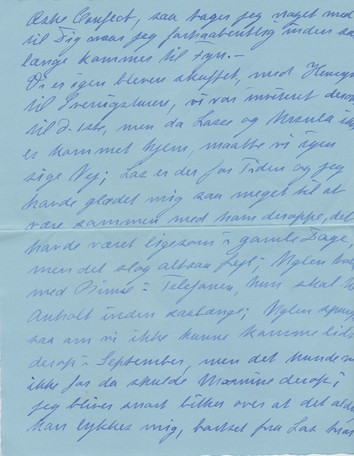 Æske Confect, saa tager jeg noget med
til Dig naar jeg forhaabentlig inden saa
længe kommer til Fyn.-
Vi er igen blevet skuffet, med Hensyn
til Sverigsture, vi var inviteret derop
til d. 1ste, men da Lasse og Ursula ikke
er kommet hjem, maatte vi igen
sige Nej; Las er der for Tiden og jeg
havde glædet mig saa meget til at
være sammen med ham deroppe, det
havde været ligesom i gamle Dage,
men det slog altsaa fejl;
med i Telefonen, hun skal til
Anholt inden saalænge;
saa om vi ikke kunne komme lidt
derop i September, men det kunde vi
ikke for da skulde derop;
jeg bliver snart bitter over at det aldrig
kan lykkes mig, bortset fra Las har